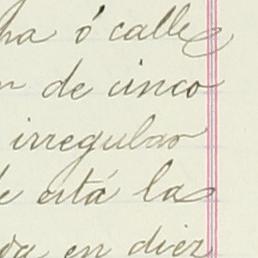 ha ó calle
n de cinco
irregular
e está la
da en diez